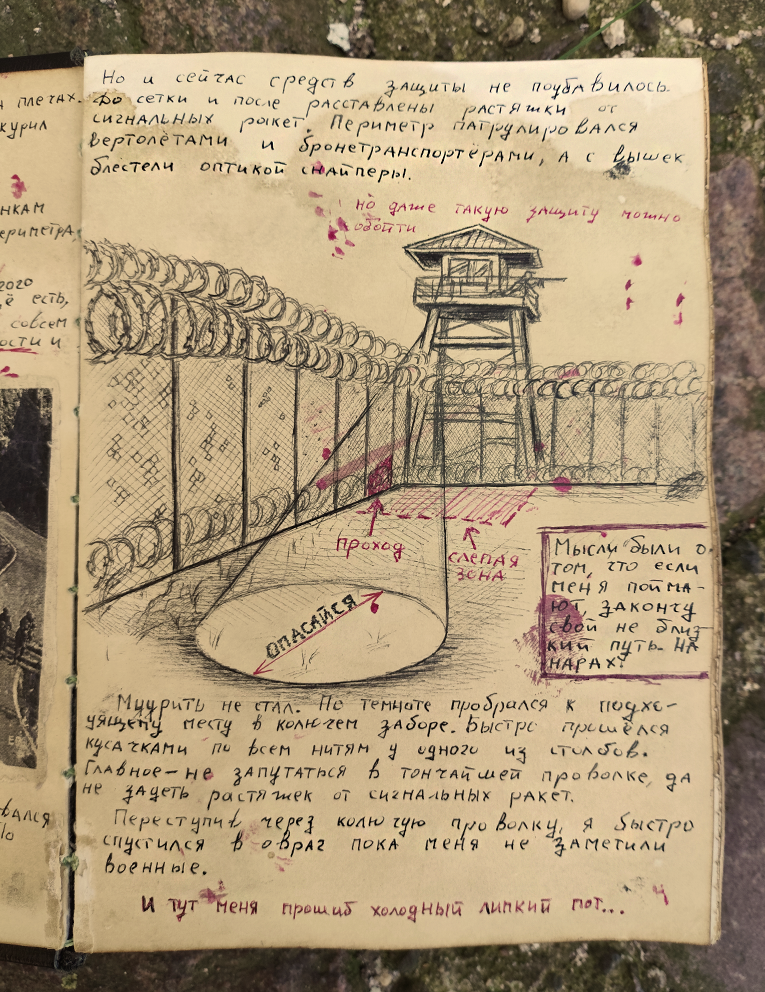 л плечах.
курил
нкам
ериметра,
ого
ё есть,
совсем
ости и
вался
По
Но и сейчас средств защиты не поубавилось.
До сетки и после расставлены растяжки от
сигнальных ракет. Периметр патрулировался
вертолётами и бронетранспортёрами, а с вышек
блестели оптикой снайперы.
но даже такую защиту можно
обойти
проход
слепая
зона
опасайся
Мысли были о
том, что если
меня пойма-
ют, закончу
свой не близ-
кий путь на
нарах!
Мудрить не стал. По темноте пробрался к подхо-
дящему месту в колючем заборе. Быстро прошёлся
кусачками по всем нитям у одного из столбов.
Главное - не запутаться в тончайшей проволке, да
не задеть растяжек от сигнальных ракет.
Переступив через колючую проволку, я быстро
спустился в овраг пока меня не заметили
военные.
И тут меня прошиб холодный липкий пот...